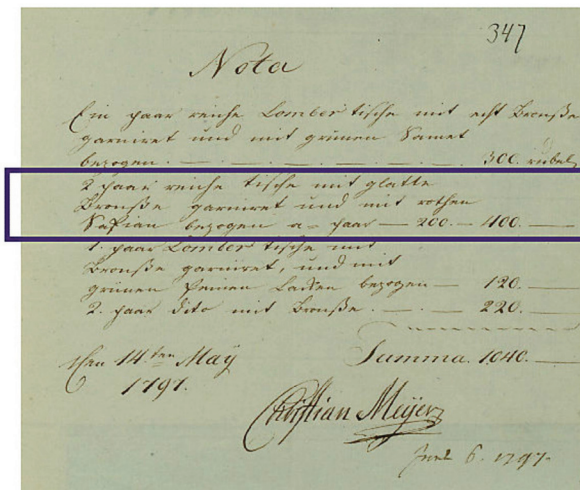 347
Nota
Ein paar reiche Lomber tische mit echt Bronße
garniret und mit grünen Samet
bezogen. — — — — — — 300. rubel
2 paar reiche tische mit glatte
Bronße garniret und mit rothen
Safian bezogen a = paar — 200. — 400. —
1. paar Lomber tische mit
Bronße garniret, und mit
grünen Lacken bezogen — 120. —
2. paar dito mit Bronße. — . — 220. —
Summa. 1040. —
den 14.ten May
1797.
Christian Meyer
6. 1797.